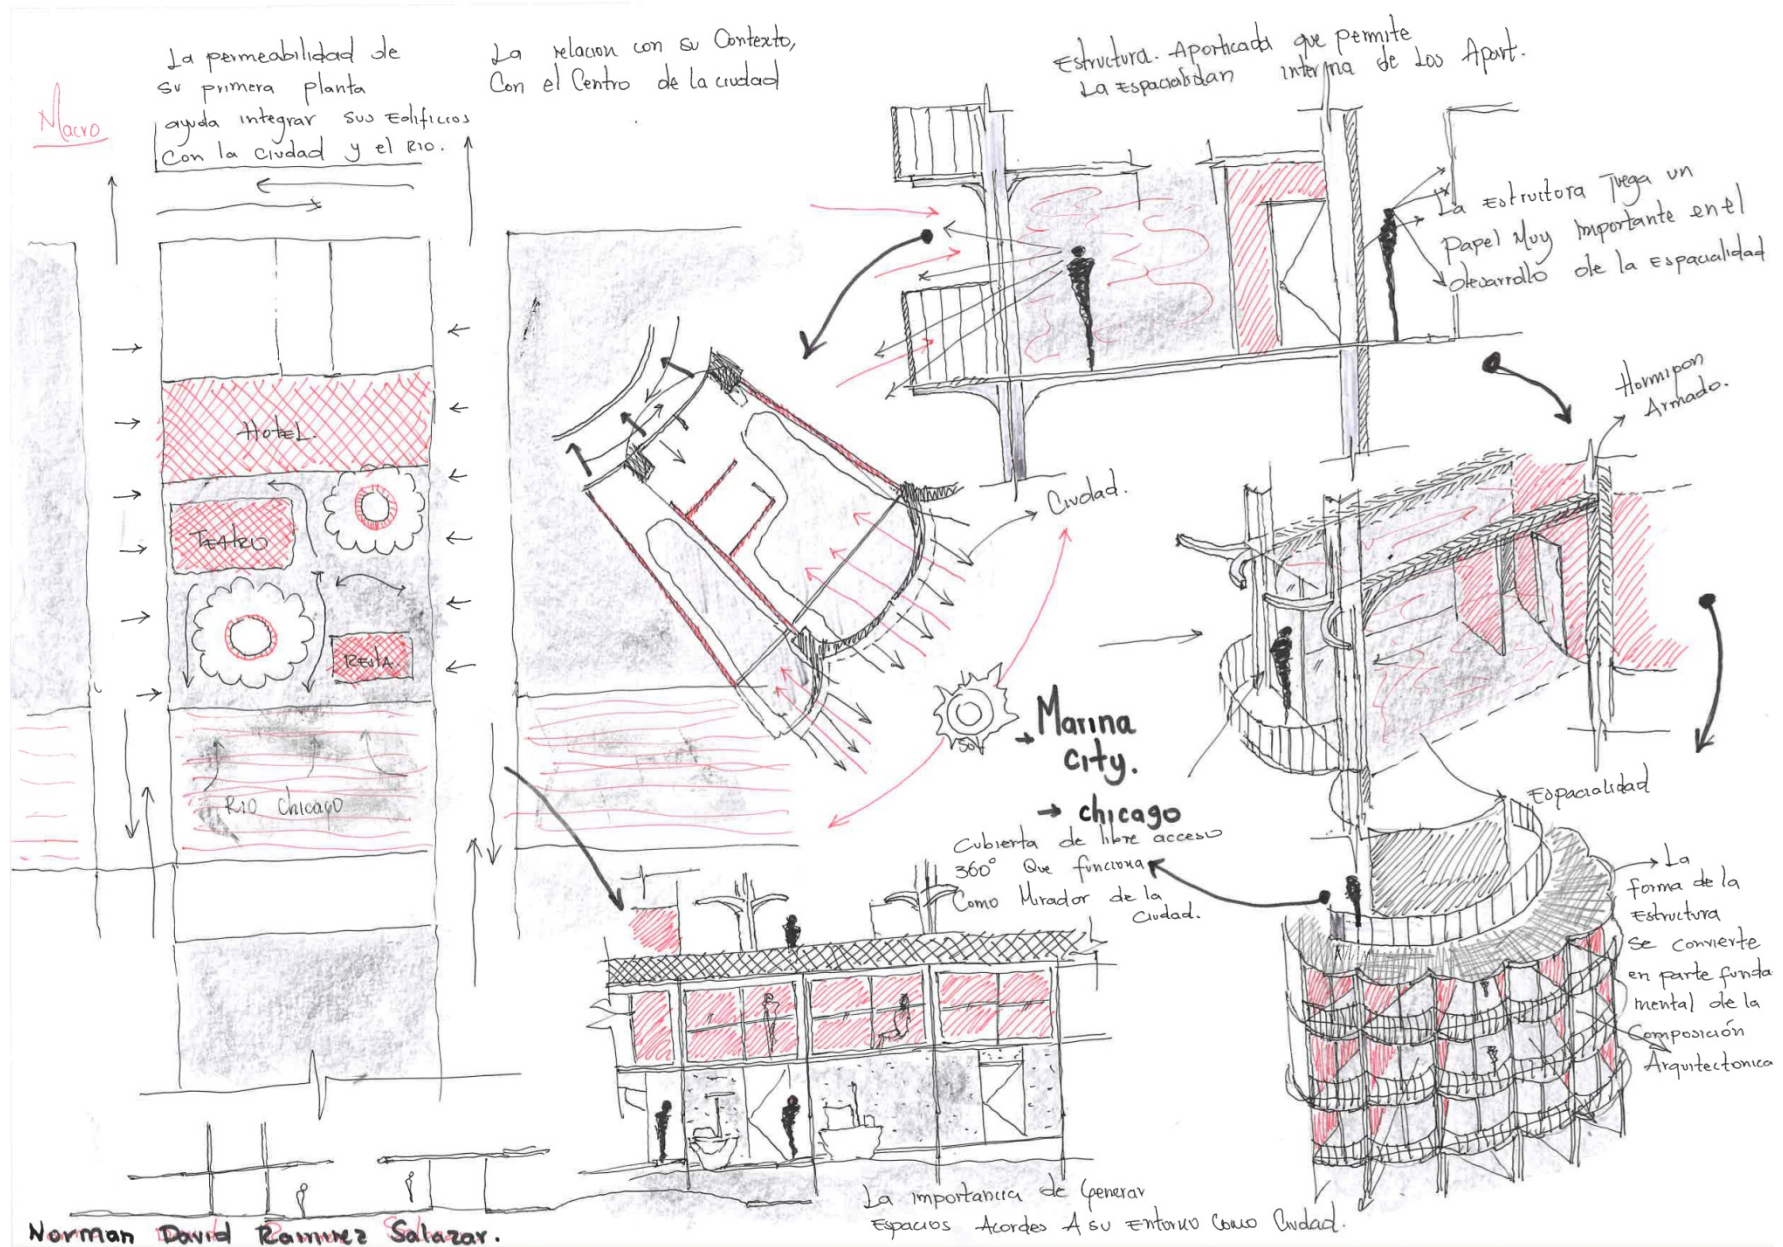 Macro
La permeabilidad de
su primera planta
ayuda integrar sus Edificios
Con la ciudad y el Rio.
La relacion con su Contexto,
Con el Centro de la ciudad
Estructura. Aporticada que permite
La Espacialidan interna de Los Apart.
La Estructura Juega un
Papel Muy Importante en el
Desarrollo de la Espacialidad
Hormigon
Armado.
Ciudad.
Hotel.
Teatro
Resta.
Rio Chicago
Sol
Marina
City.
chicago
Cubierta de libre acceso
360° Que funciona
Como Mirador de la
Ciudad.
Espacialidad
La
forma de la
Estructura
Se convierte
en parte funda
mental de la
Composición
Arquitectonica
La importancia de Generar
Espacios Acordes A su Entorno Como Ciudad.
Norman David Ramirez Salazar.